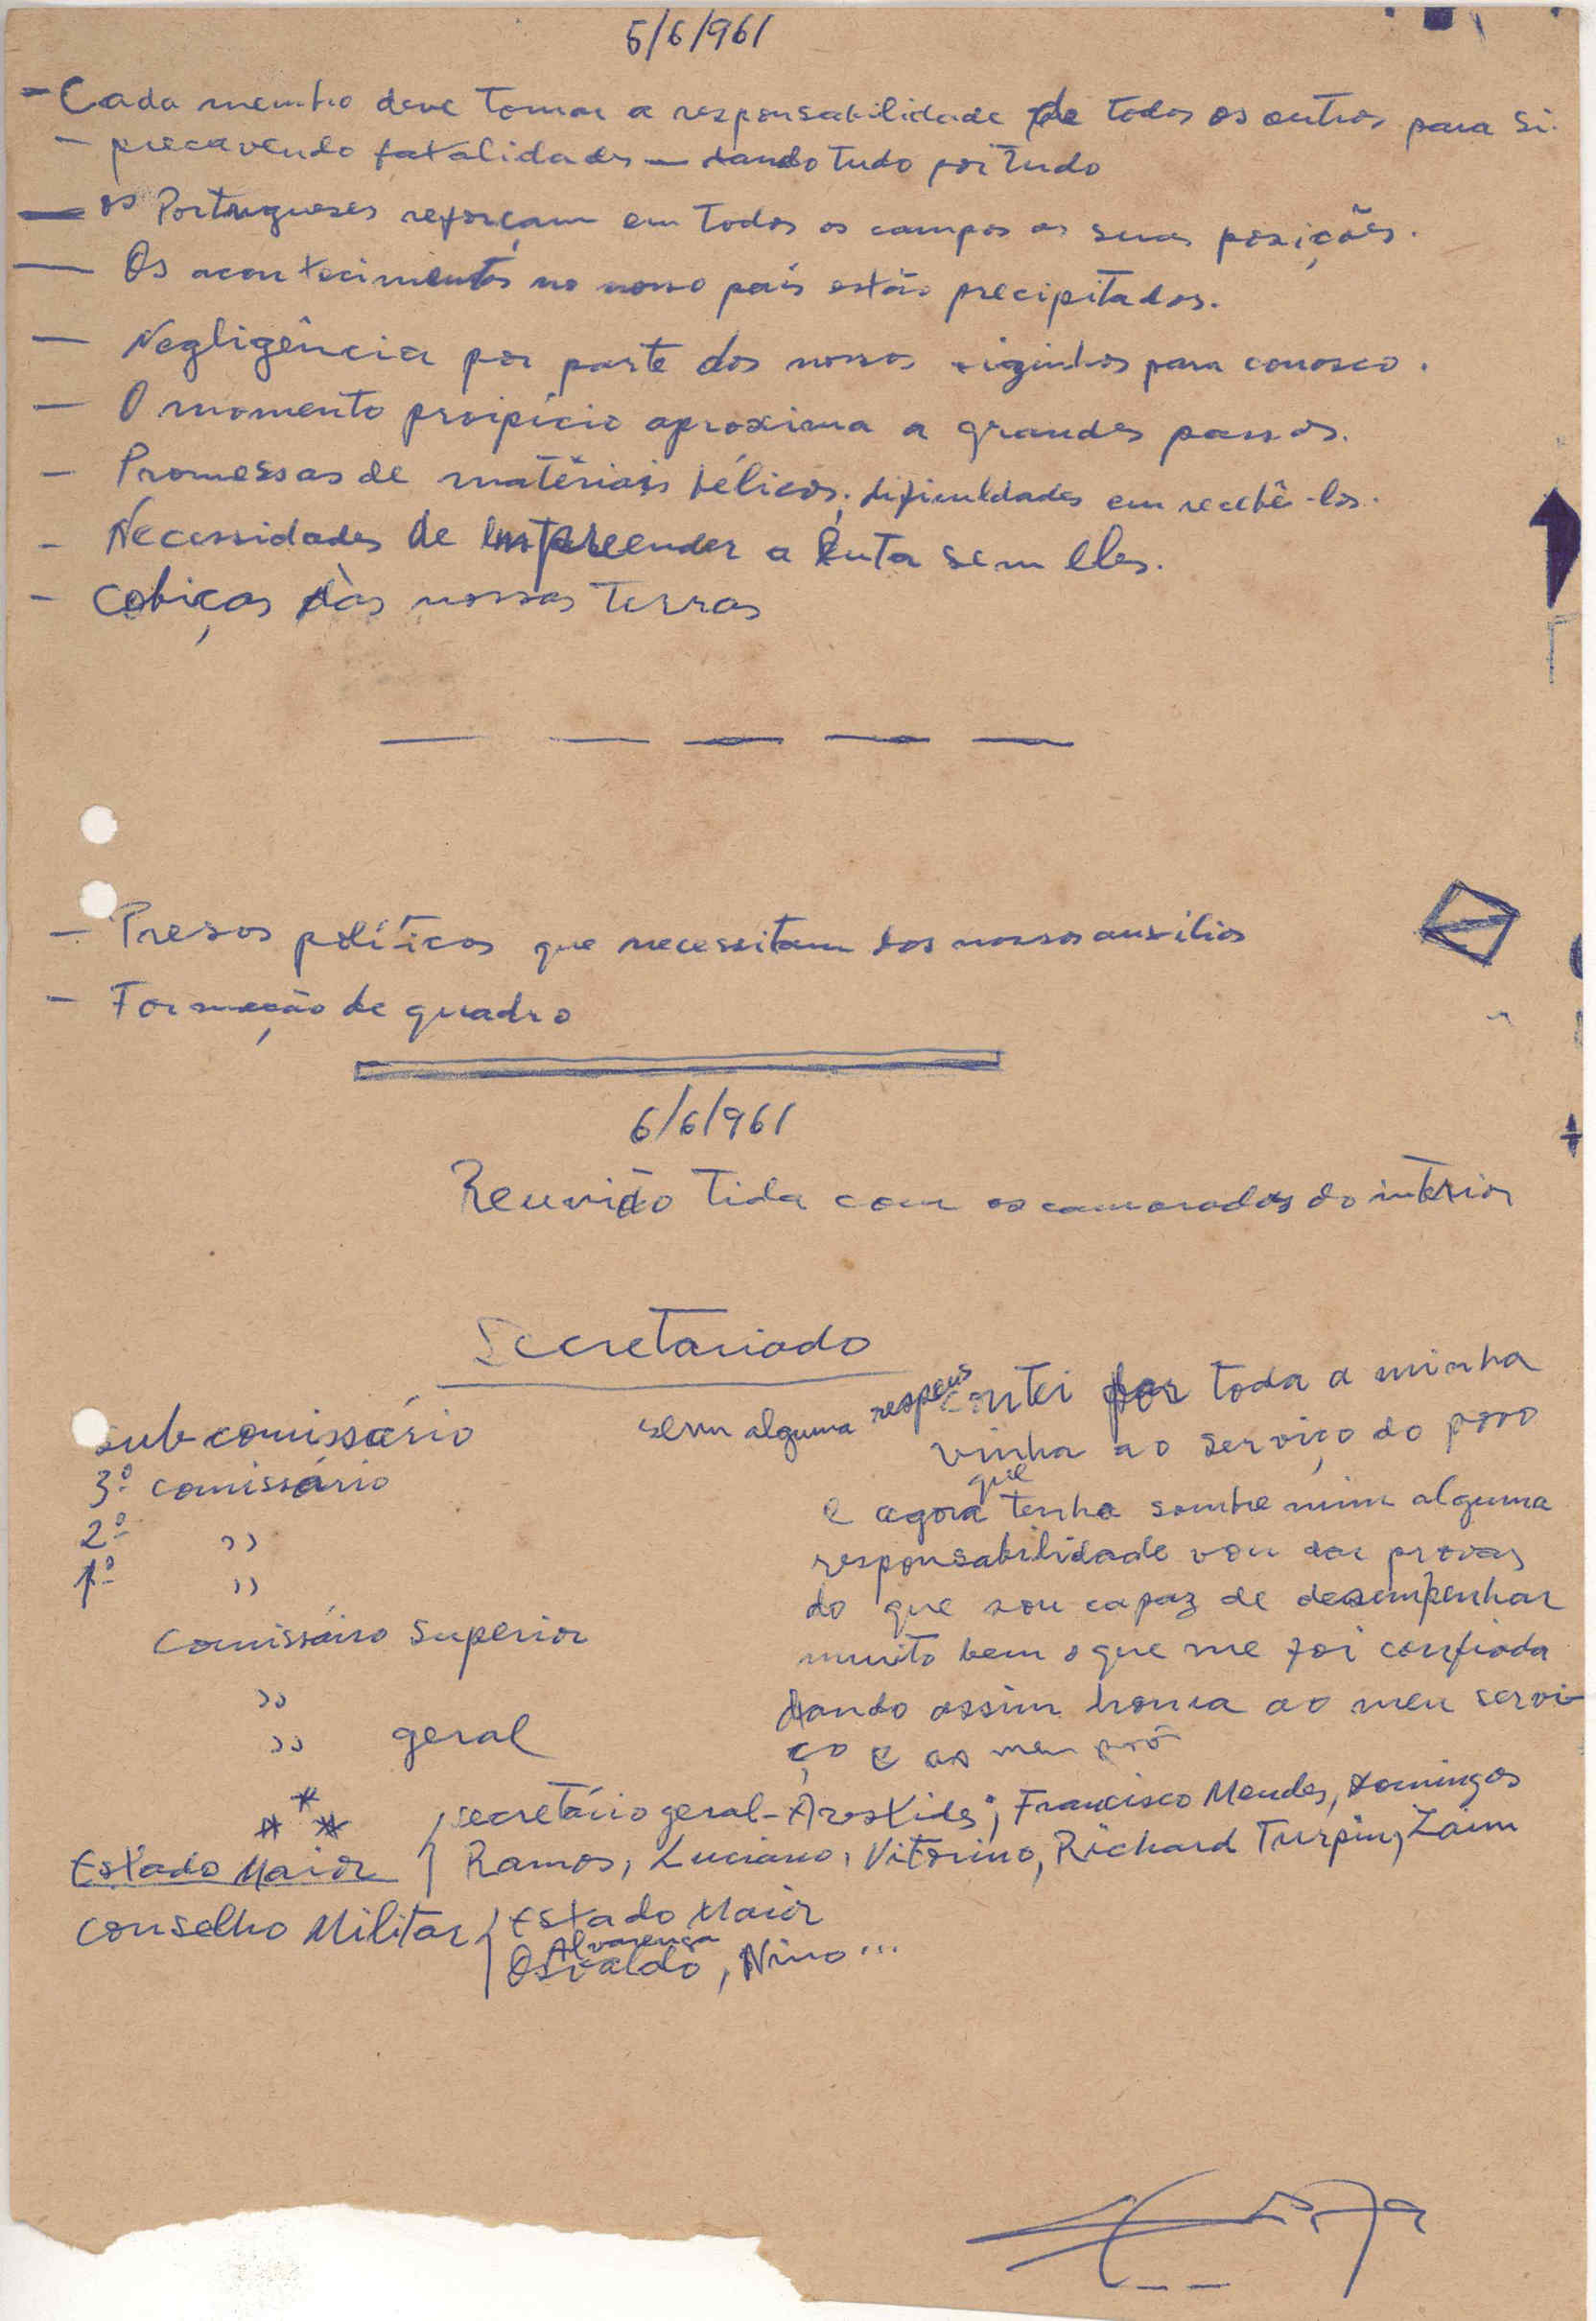 5/6/961
- Cada membro deve tomar a responsabilidade de todos os outros para si.
- precavendo fatalidades - dando tudo por tudo
- os Portugueses reforçam em todos os campos as suas posições.
- Os acontecimentos no nosso país estão precipitados.
- Negligência por parte dos nossos para conosco.
- O momento proipício aproxima a grandes passos.
- Promessas de matériais bélicos; dificuldades em recebê-los.
- Necessidades de empreender a luta sem eles.
- Cobiças às nossas terras
- Presos políticos que necessitam dos nossos auxílios
- Formação de quadro
6/6/961
Reunião tida com os camaradas do interior
Secretariado
sub comissário
3º comissário
2º ,,
1º ,,
Comissário Superior
,,
,, geral
sem alguma respons
toda a minha
vinha ao serviço do povo
e agora que tenho sombre mim alguma
responsabilidade vou dar provas
do que sou capaz de desempenhar
muito bem o que me foi confiada
dando assim honra ao meu servi-
ço e ao meu
Estado Maior { secretário geral - Arestides; Francisco Mendes, Domingos
Ramos, Luciano, Vitorino, Richard Turpin, Zaim
Conselho Militar { Estado Maior
Alvarenga
Osvaldo, Nino...